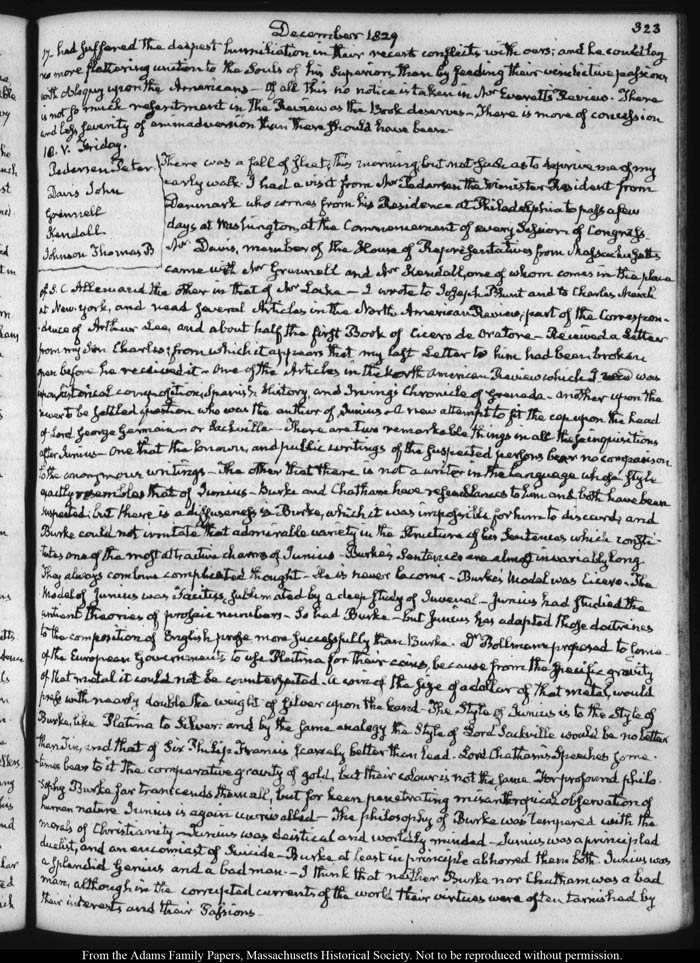 December 1829
323
17. had suffered the deepest humiliation in their recent conflicts with ours; and he could lay
no more flattering unction to the Souls of his Superiors, than by feeding their vindictive passions
with obloquy upon the Americans — Of all this no notice is taken in Mr Everett's Review. There
is not so much resentment in the Review as the Book deserves — There is more of concession
and less severity of animadversion than there should have been —
18. V. Friday.
Pedersen Peter
Davis John
Grennell
Kendall
Johnson Thomas B
There was a fall of sleet, this morning, but not such as to deprive me of my
early walk. I had a visit from Mr Pedersen the Minister Resident from
Denmark who comes from his Residence at Philadelphia to pass a few
days at Washington, at the Commencement of every Session of Congress
Mr Davis, member of the House of Representatives from Massachusetts
came with Mr Grennell and Mr Kendall, one of whom comes in the place
of S. C. Allen and the other in that of Mr Locke — I wrote to Joseph Blunt and to Charles March
at New-York, and read several Articles in the North American Review, part of the Correspon-
dence of Arthur Lee, and about half the first Book of Cicero de Oratore — Received a Letter
from my Son Charles; from which it appears that my last Letter to him had been broken
open before he received it — One of the Articles in the North American Review which I read was
upon historical composition, Spanish History, and Irving's Chronicle of Grenada — another upon the
never to be settled question who was the author of Junius — A new attempt to fit the cap upon the head
of Lord George Germain — or Sackville — There are two remarkable things in all these inquisitions
after Junius — One that the known, and public writings of the suspected persons bear no comparison
to the anonymous writings — The other that there is not a writer in the language whose style
exactly resembles that of Junius — Burke and Chatham have resemblances to him and both have been
suspected; but there is a diffuseness in Burke, which it was impossible for him to discard; and
Burke could not imitate that admirable variety in the structure of his Sentences which consti-
tutes one of the most attractive charms of Junius — Burke's Sentences are almost invariably long.
They always combine complicated thought — He is never laconic — Burke's Model was Cicero. The
Model of Junius was Tacitus, sublimated by a deep study of Juvenal — Junius had studied the
antient theories of prosaic numbers — So had Burke — but Junius has adapted those doctrines
to the composition of English prose more successfully than Burke. Dr Bollman proposed to some
of the European Governments to use Platina for their coins, because from the specific gravity
of that metal it could not be counterfeited. A coin of the size of a dollar of that metal, would
press with nearly double the weight of silver upon the hand — The Style of Junius is to the Style of
Burke, like Platina to Silver: and by the same analogy the Style of Lord Sackville would be no better
than Tin, and that of Sir Philip Francis scarcely better than lead. Lord Chatham's Speeches some-
times bear to it the comparative gravity of gold, but their colour is not the same. For profound philo-
sophy Burke far transcends them all, but for keen penetrating misanthropical observation of
human nature Junius is again unrivalled — The philosophy of Burke was tempered with the
morals of Christianity — Junius was deistical and worldly minded — Junius was a principled
duelist, and an encomiast of Suicide — Burke at least in principle abhorred them both. Junius was
a splendid Genius and a bad man. — I think that neither Burke nor Chatham was a bad
man, although in the corrupted currents of the world their virtues were often tarnished by
their interests and their Passions —
From the Adams Family Papers, Massachusetts Historical Society. Not to be reproduced without permission.